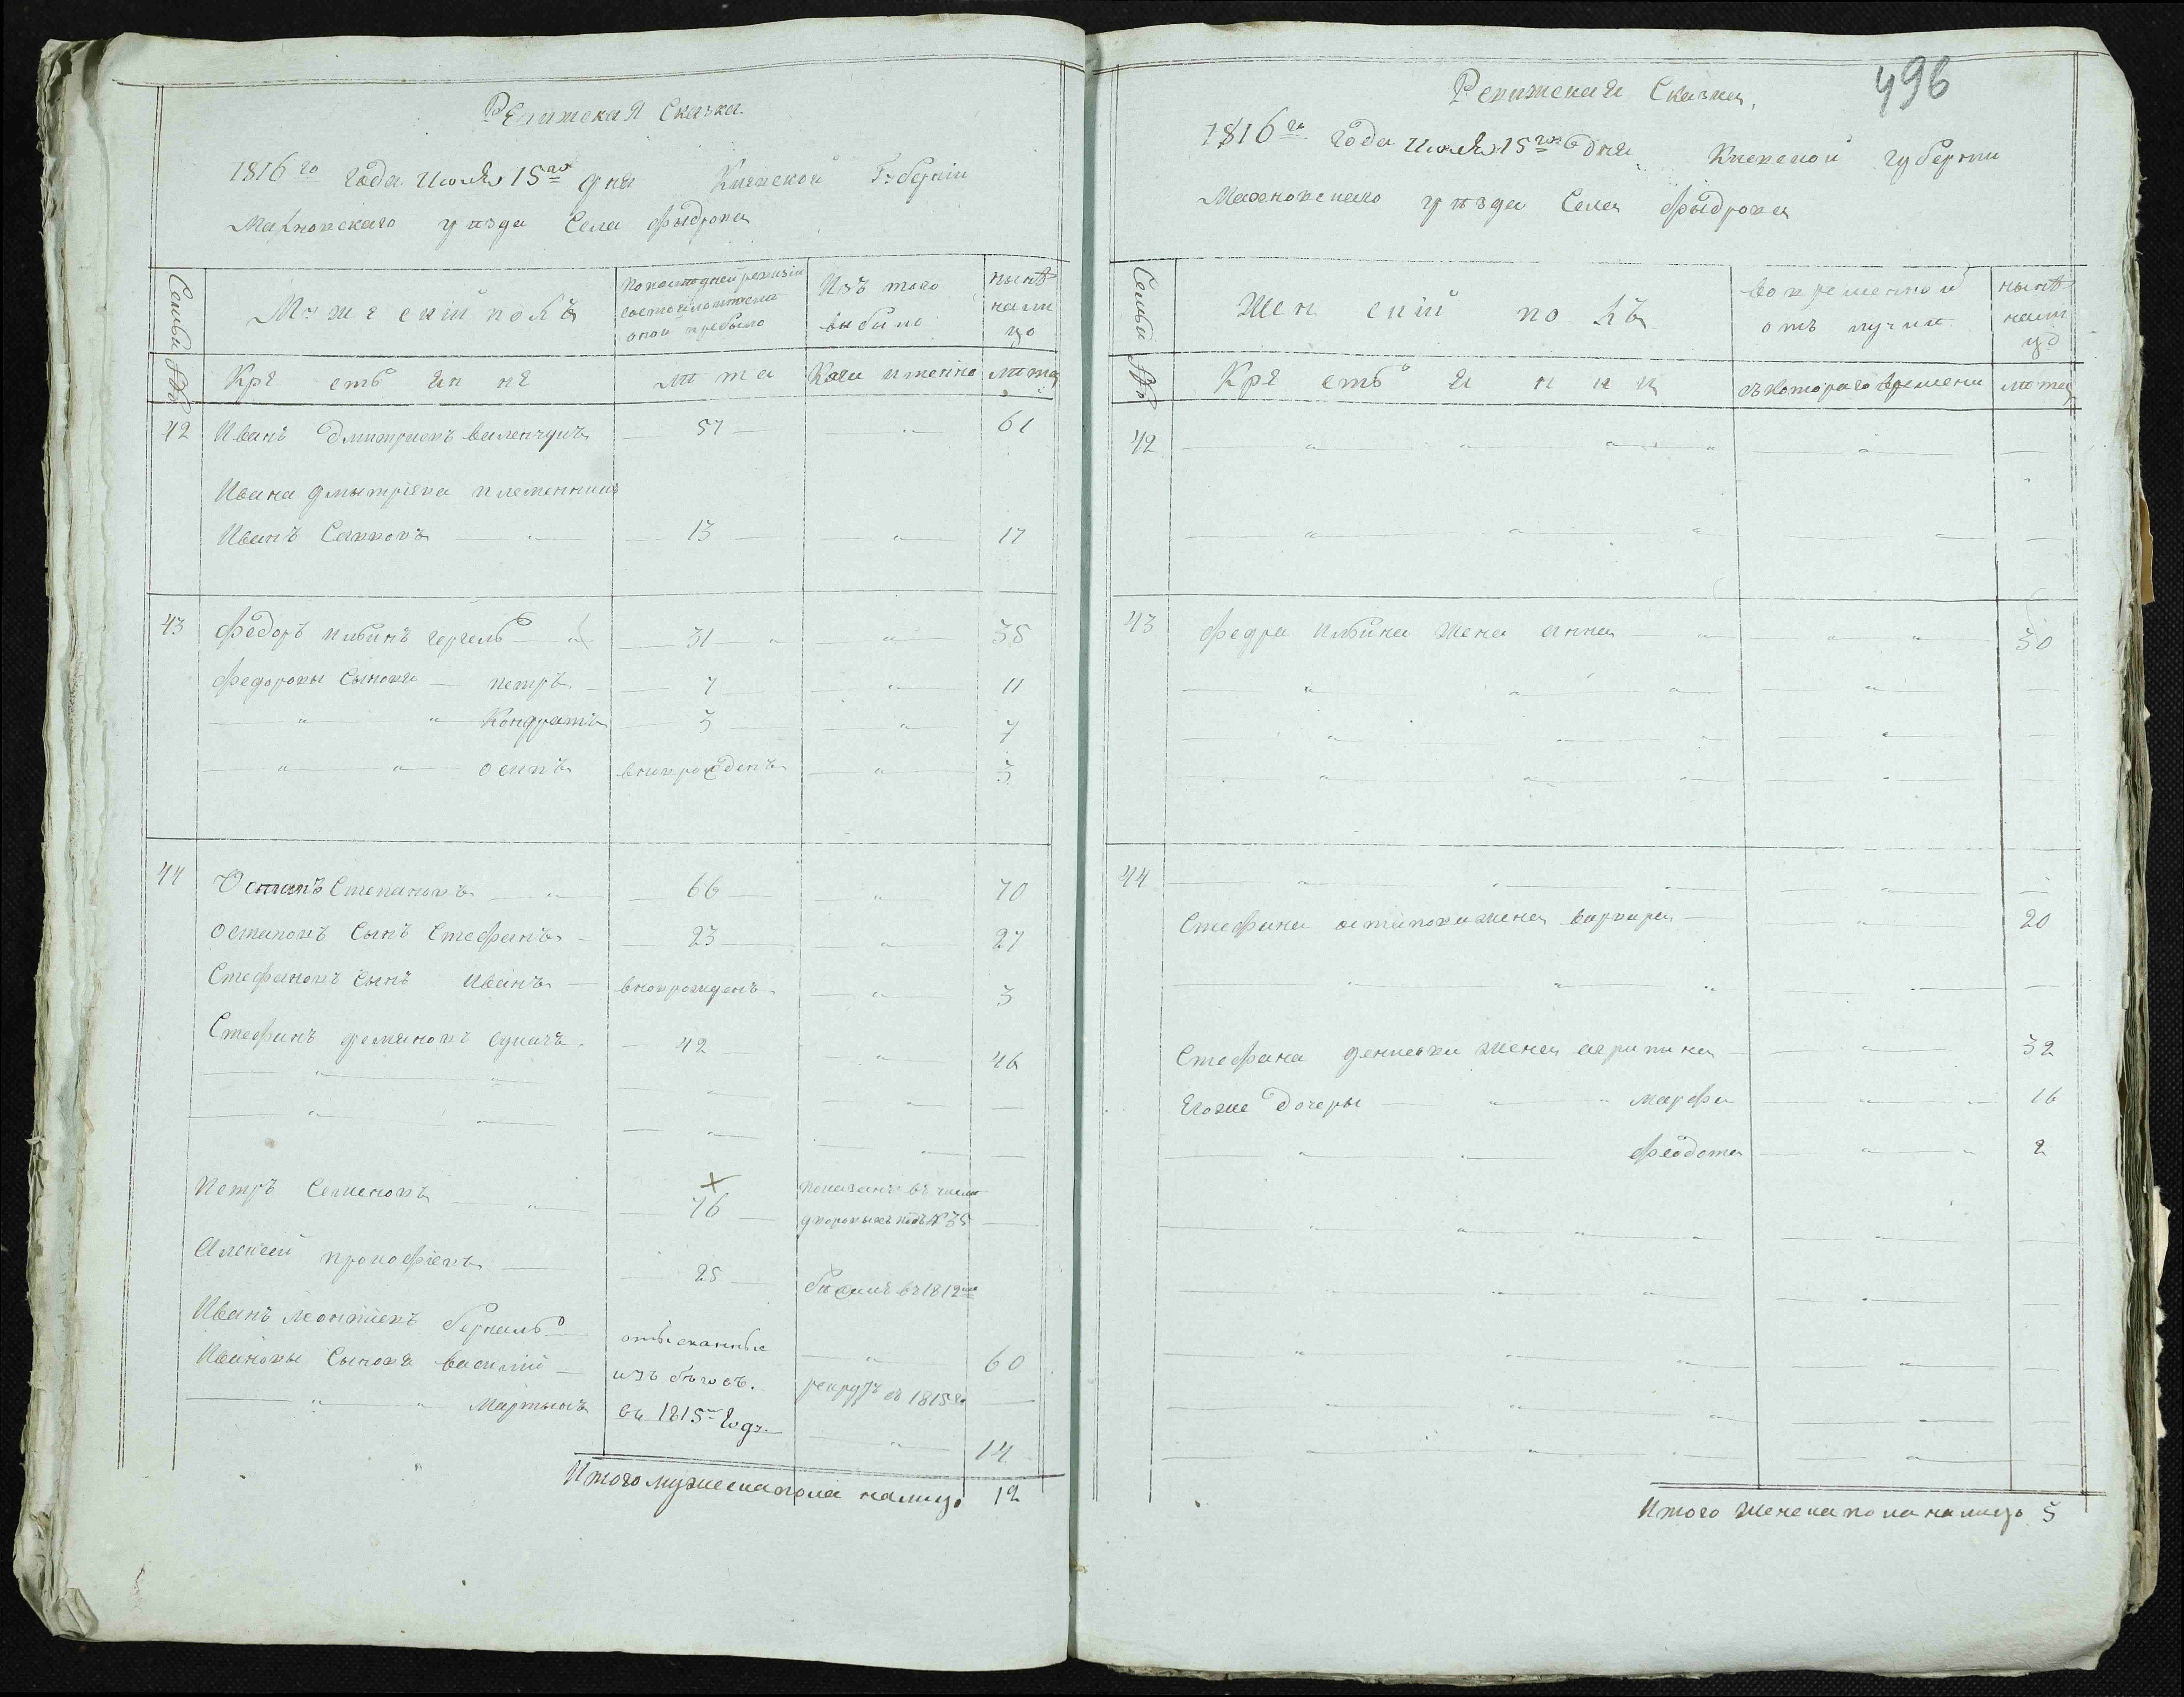 Ревижская Сказка.
1816го года Июля 15го дня Киевской Губернии
Махновскаго уезда Села Фыдрова
Семьи №
Мужескій полъ
По последней ревизіи состояло и после оной прибыло
Изъ того выбыло
ныне налицо
Крестьяне
лета
Когда именно
лета
42 Иванъ Дмитриевъ 57 61
Ивана Дмытріева племенникъ
Иванъ Савковъ 13 17
43 Федоръ Ильинъ 31 35
Федоровы Сыновя Петръ 7 11
Кондратъ 3 7
Осипъ вноврожденъ 3
44 Остапъ Степановъ 66 70
Остаповъ Сынъ Стефанъ 23 27
Стефановъ Сынъ Иванъ вноврожденъ 3
Стефанъ 42 46
Петръ Семеновъ 76 показанъ въ числе дворовыхъ подъ № 35
Алексей Прокофіевъ 25 въ 1812м
Иванъ Леонтиевъ 60
отысканные
Ивановы Сыновя Василий изъ бегов. рекрутъ въ 1815г
Мартынъ въ 1815м году 14
Итого мужеска пола налицо 12
496
Ревижская Сказка.
1816го года Июля 15го дня Киевской губернии
Махновскаго уезда Села Фыдрова
Семьи №
Женскій полъ
во временной отлучке
ныне налицо
Крестьянки
съ котораго времени
лета
42
43 Федра Ильина жена Анна 30
44
Стефана Остапова жена Варвара 20
Стефана жена Агрипына 32
Егоже Дочеры Марфа 16
Феодота 2
Итого женска пола налицо 5